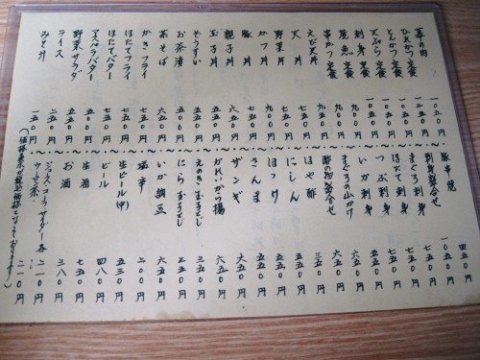 ひれかつ定食 一〇五〇円
とんかつ定食 一〇五〇円
天ぷら定食 一〇五〇円
刺身定食 一〇五〇円
焼魚定食 九〇〇円
串かつ定食 九〇〇円
えび天丼 九五〇円
天丼 七五〇円
野菜丼 七五〇円
かつ丼 七五〇円
豚丼 七五〇円
親子丼 六五〇円
玉子丼 五五〇円
ぞうすい 五五〇円
お茶漬 五〇〇円
茶そば 六五〇円
かきフライ 七五〇円
ほたてフライ 七五〇円
ほたてバター 七五〇円
アスパラバター 五〇〇円
野菜サラダ 五五〇円
ライス 一五〇円
みそ汁 一五〇円
四五〇円
刺身盛合せ 一〇五〇円
まぐろ刺身 七五〇円
ほたて刺身 七五〇円
つぶ刺身 七五〇円
いか刺身 六五〇円
まぐろの山かけ 六五〇円
酢の物盛合せ
ほや酢 三五〇円
にしん 五五〇円
ほっけ 五五〇円
さんま 五五〇円
ザンギ 六五〇円
かれいから揚 六五〇円
えのき玉子とじ 三五〇円
にら玉子とじ 三五〇円
いか納豆
塩辛 二〇〇円
生ビール(中) 五三〇円
ビール 四八〇円
生酒 七五〇円
お酒 三八〇円
ジュース・コーラ・サイダー各 二一〇円
ウーロン茶 二一〇円
(価格表示が税込価格となっております)